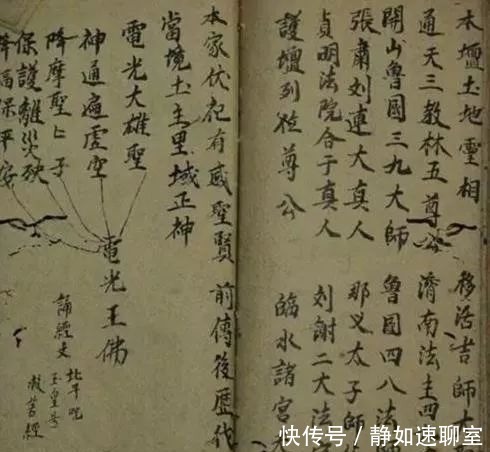 本壇土地靈相 移活吉師
通天三教林五尊公 濟南法主四
開山魯國三九大師 魯國四八法師
張肅刘連大真人 那叉太子師
貞明法院合于真人 刘謝二大法
護壇列位尊公 臨水諸宮
本家伏祀有感聖賢 前傳後歷代
當境土主里域正神
電光大雄聖
神通遍虛空
降摩聖匕子
保護離災殃
降福保平安
電光王佛
誦經文
北斗咒
玉皇号
救苦經
快传号／静如速聊室